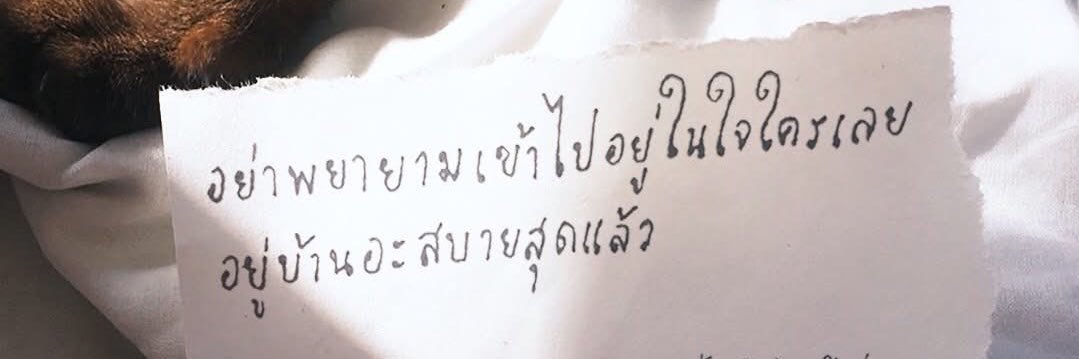 อย่าพยายามเข้าไปอยู่ในใจใครเลย
อยู่บ้านอะสบายสุดแล้ว